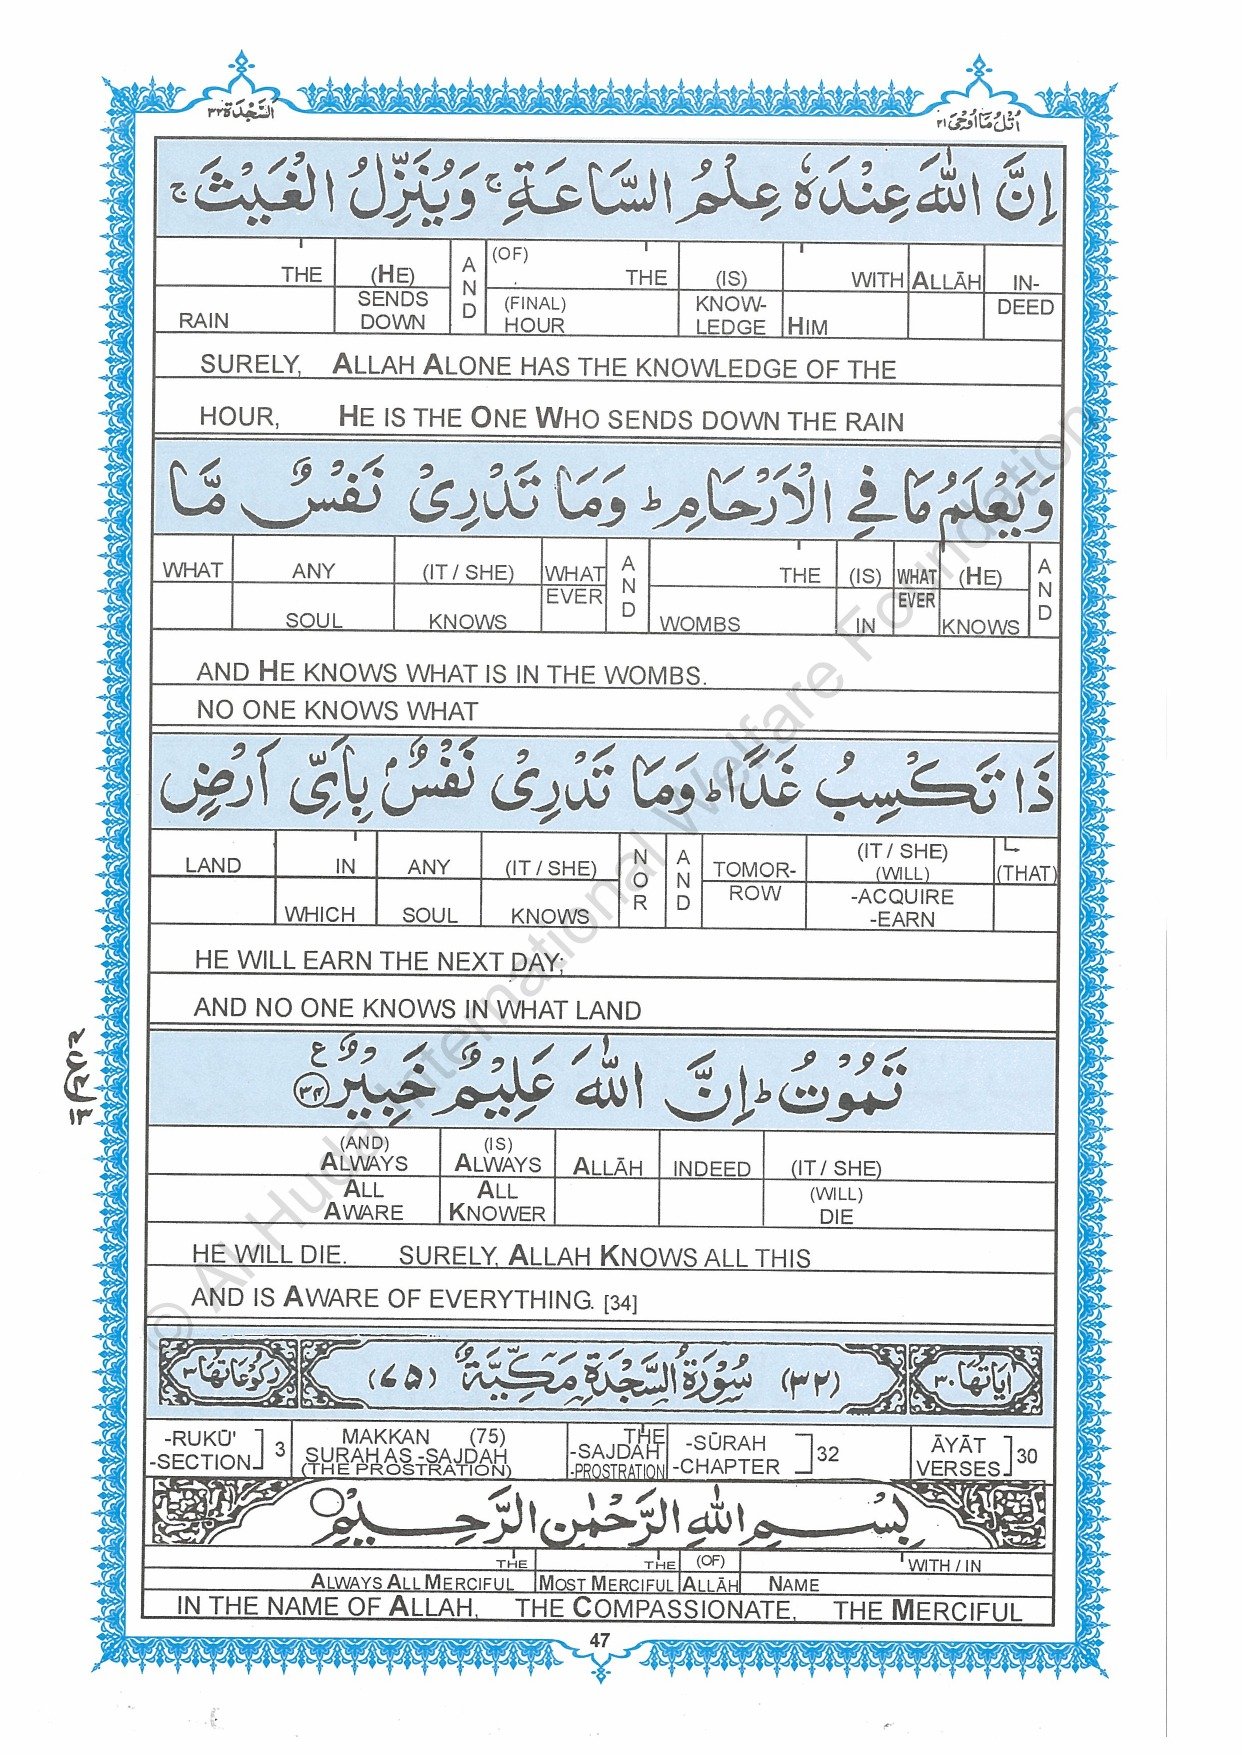 السَّجْدَة ٣٢
اُتْلُ مَا اُوْحِیَ ٢١
اِنَّ اللّٰهَ عِنْدَهٗ عِلْمُ السَّاعَةِ ۚ وَيُنَزِّلُ الْغَيْثَ ۚ
THE (HE) AND (OF) THE (IS) WITH ALLĀH IN-
RAIN SENDS DOWN (FINAL) HOUR KNOW-LEDGE HIM DEED
SURELY, ALLAH ALONE HAS THE KNOWLEDGE OF THE
HOUR, HE IS THE ONE WHO SENDS DOWN THE RAIN
وَيَعْلَمُ مَا فِي الْاَرْحَامِ ؕ وَمَا تَدْرِیْ نَفْسٌ مَّا
WHAT ANY (IT / SHE) WHAT AND THE (IS) WHAT (HE) AND
SOUL KNOWS EVER WOMBS IN EVER KNOWS
AND HE KNOWS WHAT IS IN THE WOMBS.
NO ONE KNOWS WHAT
ذَا تَكْسِبُ غَدًا ؕ وَمَا تَدْرِیْ نَفْسٌۢ بِاَیِّ اَرْضٍ
LAND IN ANY (IT / SHE) NOR AND TOMOR- (IT / SHE) (WILL) (THAT)
WHICH SOUL KNOWS ROW -ACQUIRE -EARN
HE WILL EARN THE NEXT DAY;
AND NO ONE KNOWS IN WHAT LAND
تَمُوْتُ ؕ اِنَّ اللّٰهَ عَلِيْمٌ خَبِيْرٌ ٣٤ ع
(AND) ALWAYS (IS) ALWAYS ALLĀH INDEED (IT / SHE)
ALL AWARE ALL KNOWER (WILL) DIE
HE WILL DIE. SURELY, ALLAH KNOWS ALL THIS
AND IS AWARE OF EVERYTHING. [34]
اٰيَاتُهَا ٣٠ (٣٢) سُوْرَةُ السَّجْدَةِ مَكِّيَّةٌ (٧٥) رُكُوْعَاتُهَا ٣
-RUKŪ' -SECTION 3 MAKKAN (75) SURAH AS -SAJDAH (THE PROSTRATION) THE -SAJDAH -PROSTRATION -SŪRAH -CHAPTER 32 ĀYĀT VERSES 30
بِسْمِ اللّٰهِ الرَّحْمٰنِ الرَّحِيْمِ
THE THE (OF) WITH / IN
ALWAYS ALL MERCIFUL MOST MERCIFUL ALLĀH NAME
IN THE NAME OF ALLAH, THE COMPASSIONATE, THE MERCIFUL
47
© Al Huda International Welfare Foundation